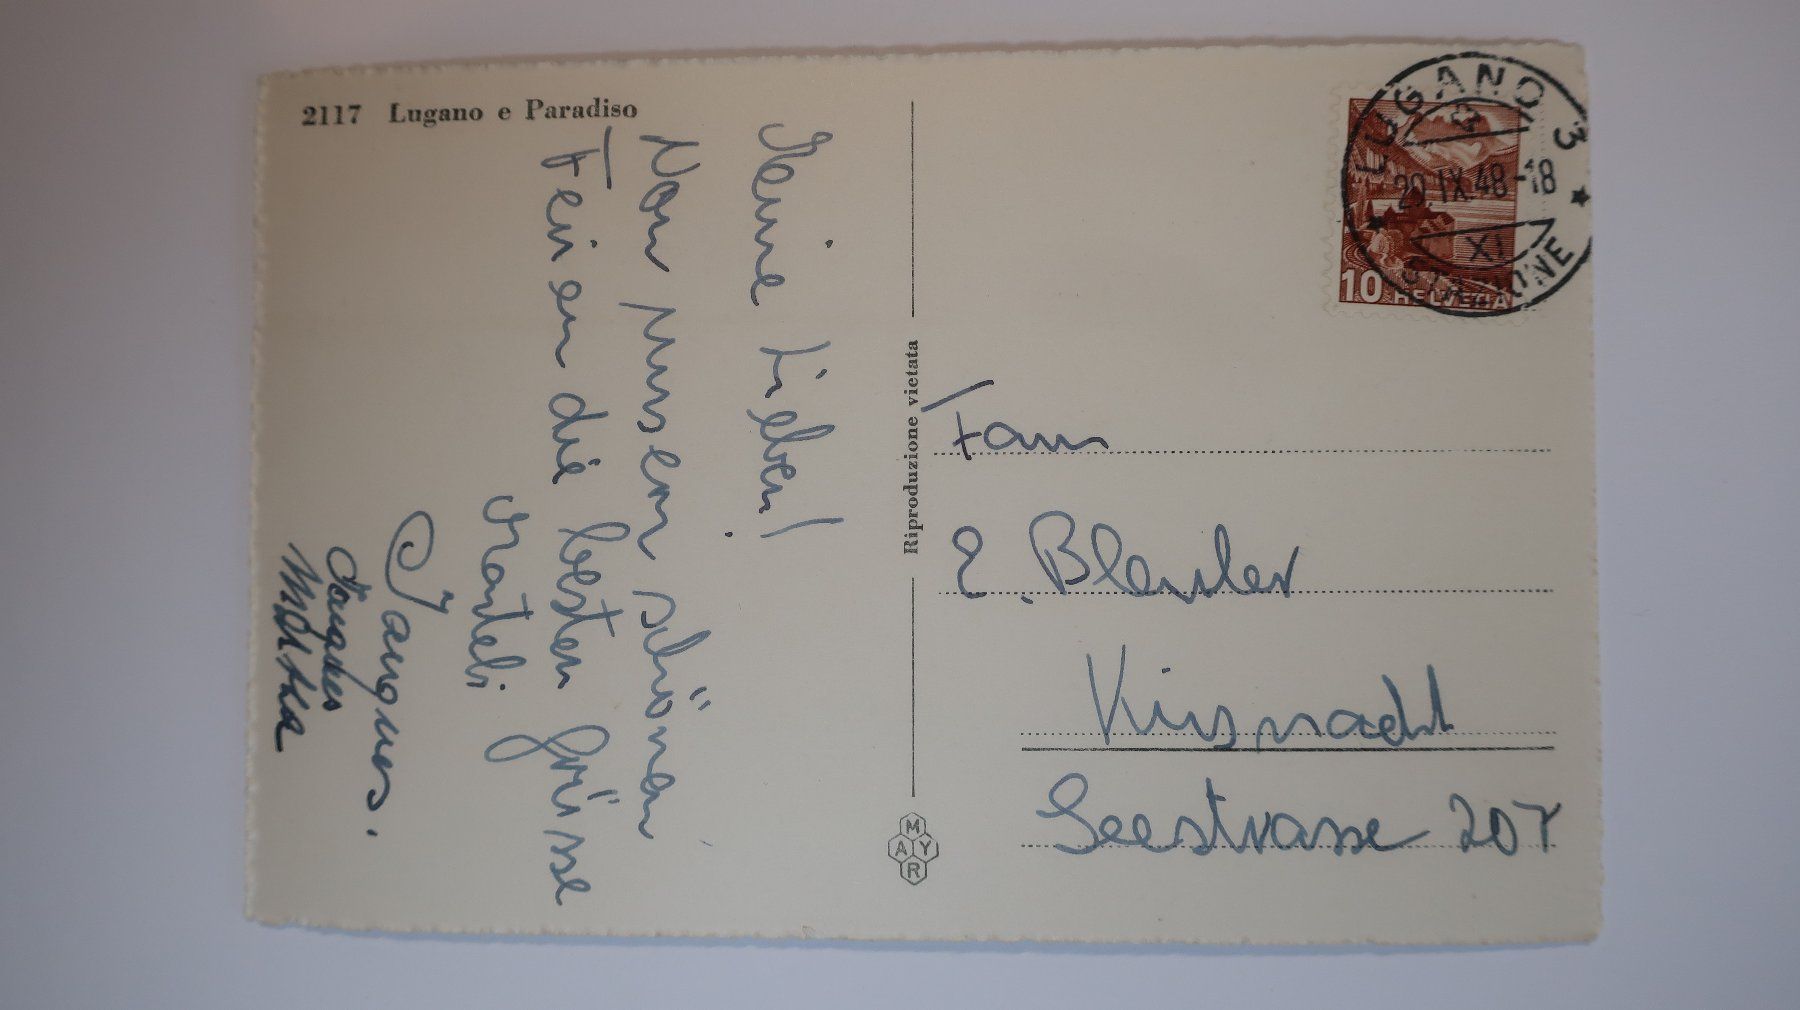 2117 Lugano e Paradiso
Meine Lieben!
Von unseren schönen
Ferien die besten Grüsse
Riproduzione vietata
MAYR
LUGANO 3
20.IX.48-18
XI
STAZIONE
10 HELVETIA
Fam
E. Bleuler
Küsnacht
Seestrasse 207